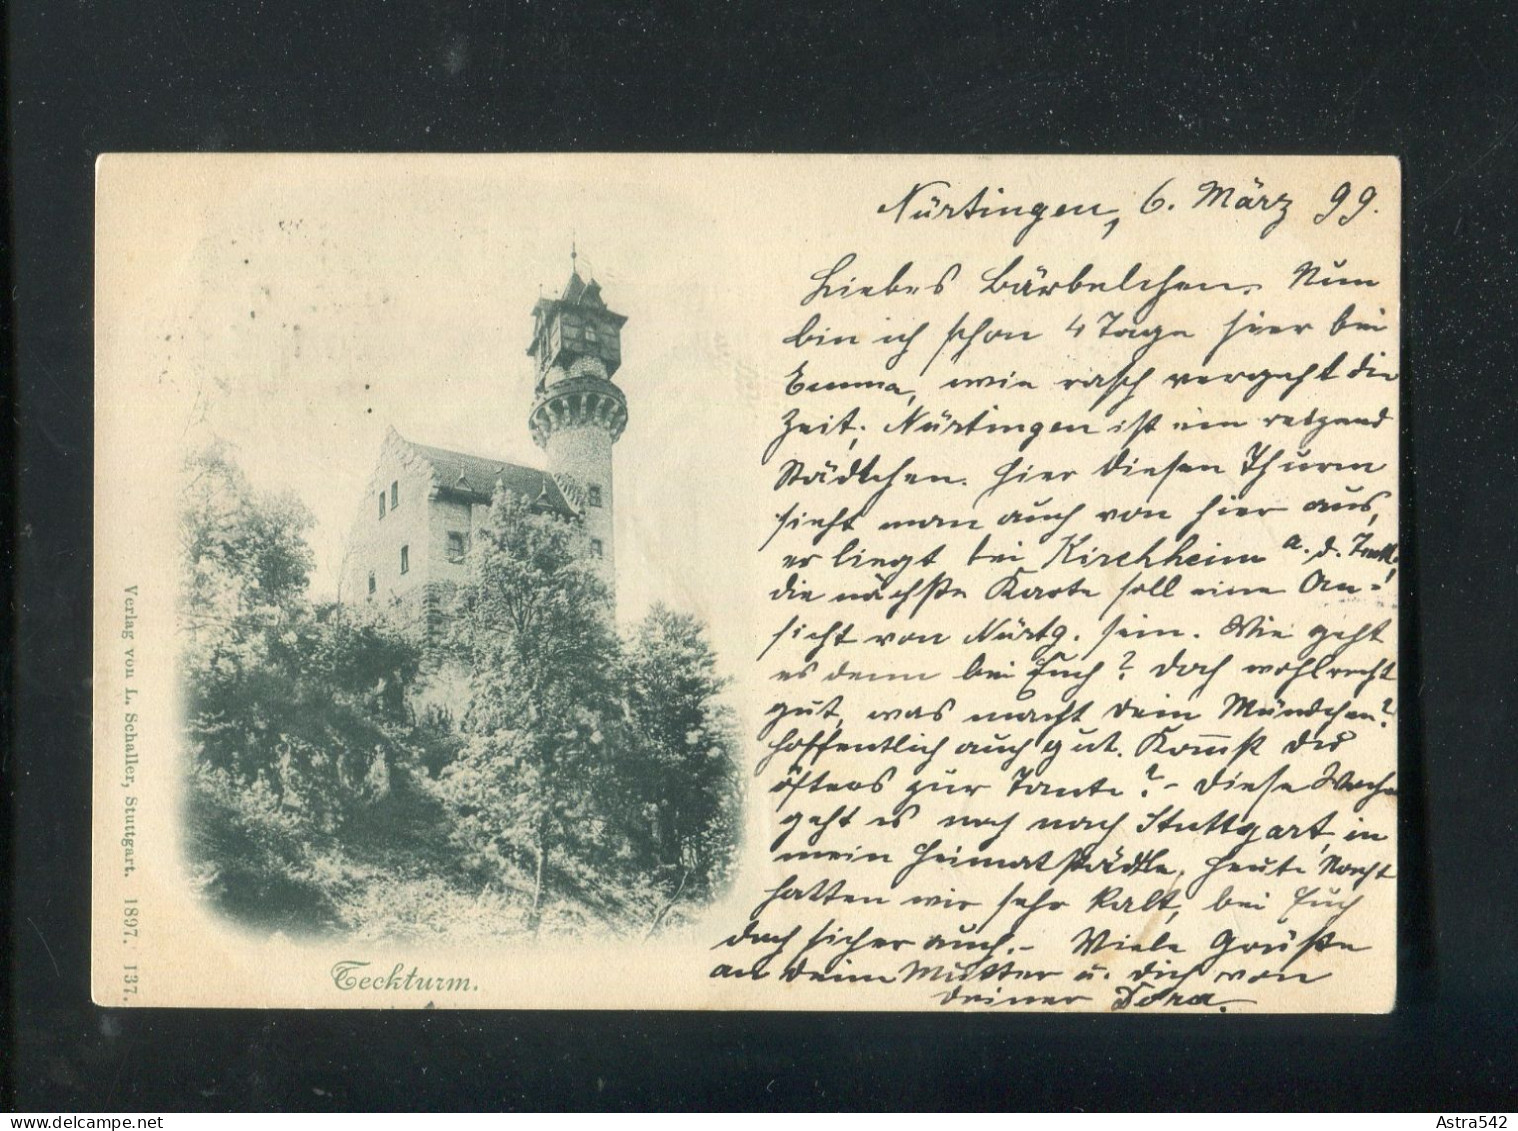 Nürtingen, 6. März 99.
Liebes Bärbelchen. Nun
bin ich schon 4 Tage hier bei
Emma, wie rasch vergeht die
Zeit; Nürtingen ist ein reizend
Städtchen. Hier diesen Thurm
sieht man auch von hier aus,
er liegt bei Kirchheim a. d. Teck!
die nächste Karte soll eine An-
sicht von Nürtg. sein. Wie geht
es denn bei Euch? Doch wohl recht
gut, was macht dein Mündchen?
hoffentlich auch gut. Kommst du
öfters zur Tante? - Diese Woche
geht es noch nach Stuttgart, in
mein Heimatstädtle, heute Nacht
hatten wir sehr kalt, bei Euch
doch sicher auch. - Viele Grüße
an deine Mutter u. dich von
deiner Dora.
Teckturm.
Verlag von L. Schaller, Stuttgart. 1897. 137.
Astra542